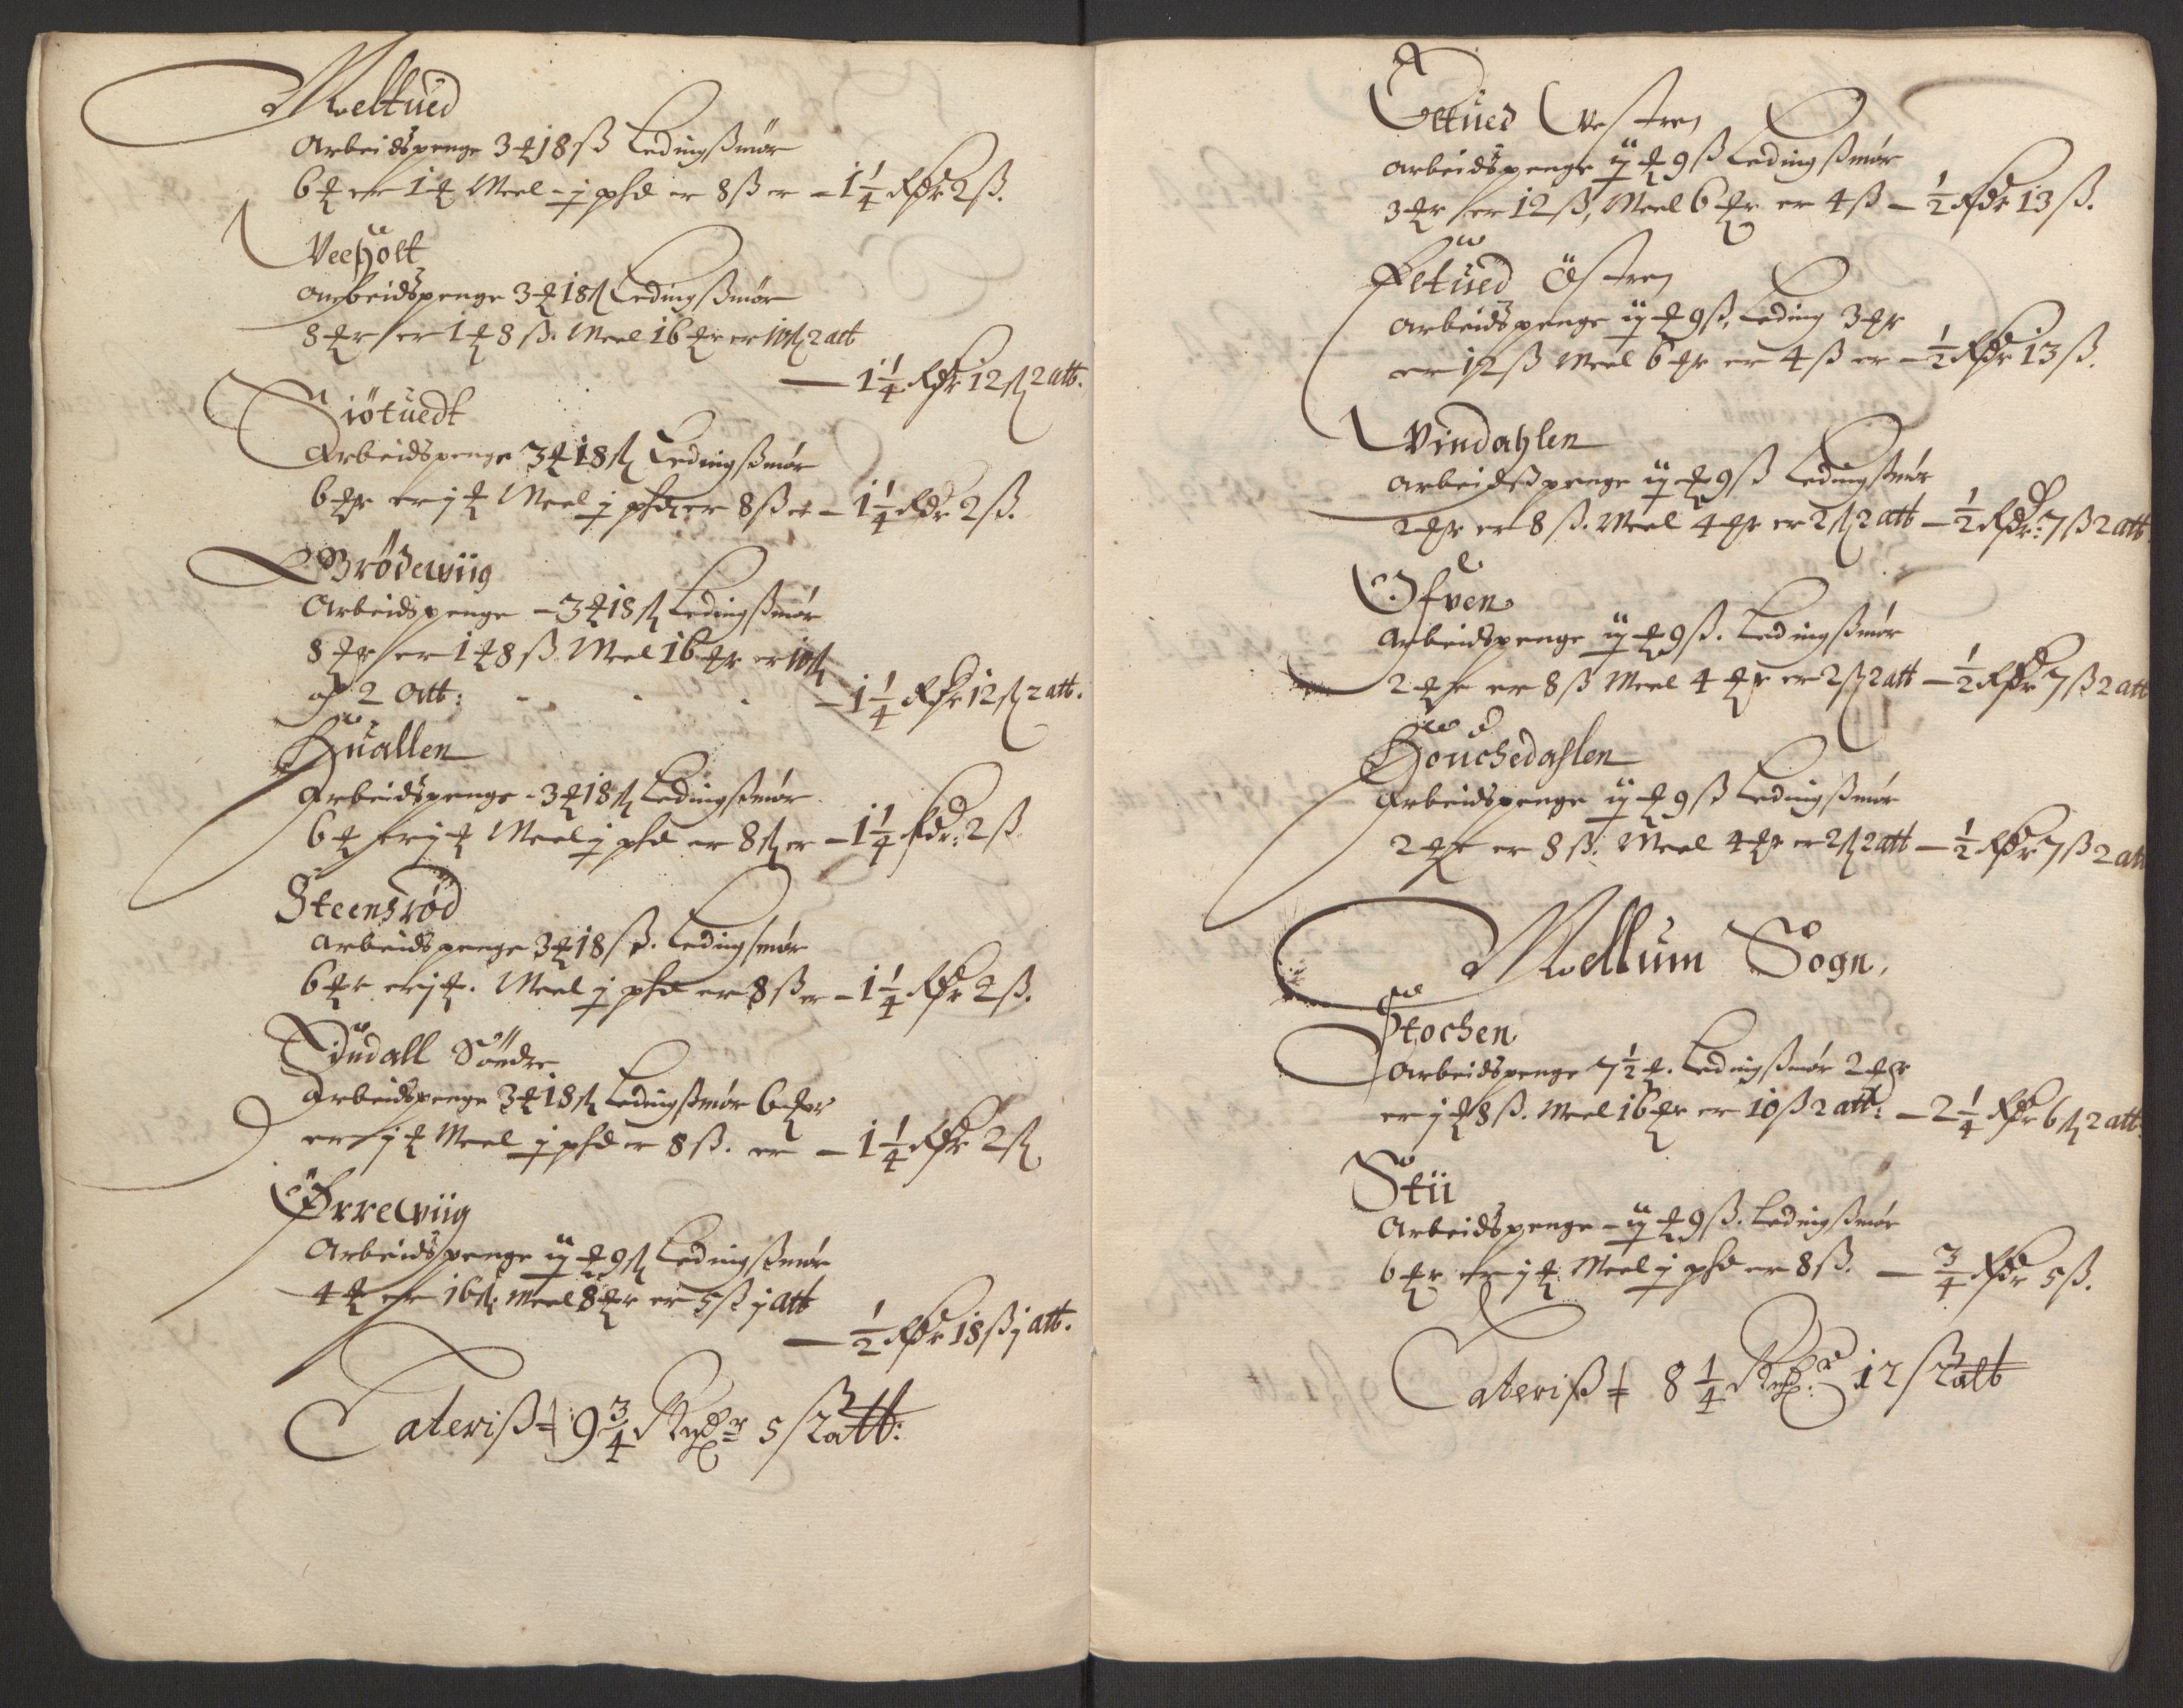 Meltued
Arbeidspenge 3 ₰ 18 ß Ledingßmør
6 ₰ er 1 ₰ Meel - j pħd er 8 ß er - 1 1/4 Rdr 2 ß.
Veeholt
Arbeidspenge 3 ₰ 18 ß Ledingßmør
8 ₰r er 1 ₰ 8 ß. Meel 16 ₰r er 10 ß 2 att
— 1 1/4 Rdr 12 ß 2 att.
Siötuedt
Arbeidspenge 3 ₰ 18 ß Ledingßmør
6 ₰r er j ₰ Meel j pħd er 8 ß er - 1 1/4 Rdr 2 ß.
Brödewiig
Arbeidspenge - 3 ₰ 18 ß Ledingßmør
8 ₰r er 1 ₰ 8 ß Meel 16 ₰r er 10 ß
og 2 Att: - - - 1 1/4 Rdr 12 ß 2 att.
Huallen
Arbeidspenge - 3 ₰ 18 ß Ledingßmør
6 ₰ er j ₰ Meel j pħd er 8 ß er - 1 1/4 Rdr: 2 ß
Steensrød
Arbeidspenge 3 ₰ 18 ß. Ledingsmør
6 ₰r er j ₰. Meel j pħd er 8 ß er - 1 1/4 Rdr 2 ß.
Söndre
Arbeidspenge 3 ₰ 18 ß Ledingßmør 6 ₰r
er j ₰ Meel j pħd er 8 ß. er - 1 1/4 Rdr 2 ß
Ørrewiig
Arbeidspenge ij ₰ 9 ß Ledingßmør
4 ₰ er 16 ß. Meel 8 ₰r er 5 ß j att
— 1/2 Rdr 18 ß j att.
Lateriß = 9 3/4 Rixdr 5 ß 2 att:
Vestren
Arbeidspenge ij ₰ 9 ß Ledingßmør
3 ₰r er 12 ß, Meel 6 ₰r er 4 ß - 1/2 Rdr 13 ß.
Östren
Arbeidspenge ij ₰ 9 ß, Leding 3 ₰r
er 12 ß Meel 6 ₰r er 4 ß er - 1/2 Rdr 13 ß.
Vindahlen
Arbeidspenge ij ₰ 9 ß Ledingßmør
2 ₰r er 8 ß. Meel 4 ₰r er 2 ß 2 att - 1/2 Rdr: 7 ß 2 att
Ofven
Arbeidspenge ij ₰ 9 ß. Ledingßmør
2 ₰r er 8 ß Meel 4 ₰r er 2 ß 2 att - 1/2 Rdr 7 ß 2 att
Houchedahlen
Arbeidspenge ij ₰ 9 ß Ledingßmør
2 ₰r er 8 ß. Meel 4 ₰r er 2 ß 2 att - 1/2 Rdr 7 ß 2 att
Mellum Sogn.
Stochen
Arbeidspenge 7 1/2 ₰. Ledingßmør 2 ₰r
er j ₰ 8 ß. Meel 16 ₰r er 10 ß 2 att: - 2 1/4 Rdr 6 ß 2 att:
Stii
Arbeidspenge - ij ₰ 9 ß. Ledingßmør
6 ₰r er j ₰. Meel j pħd er 8 ß. - 3/4 Rdr 5 ß.
Lateriß = 8 1/4 Rixdr: 12 ß 2 att